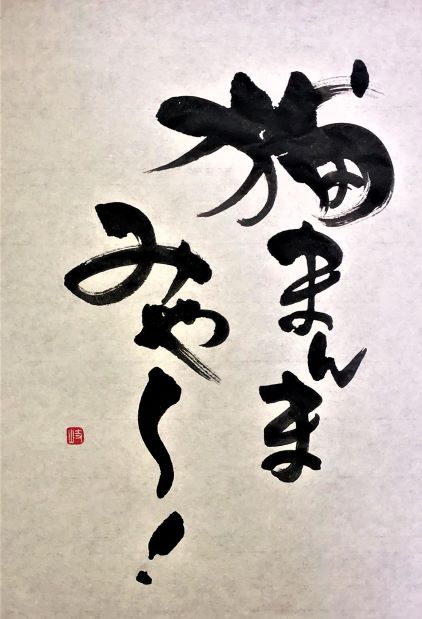 猫まんま
みゃ〜!